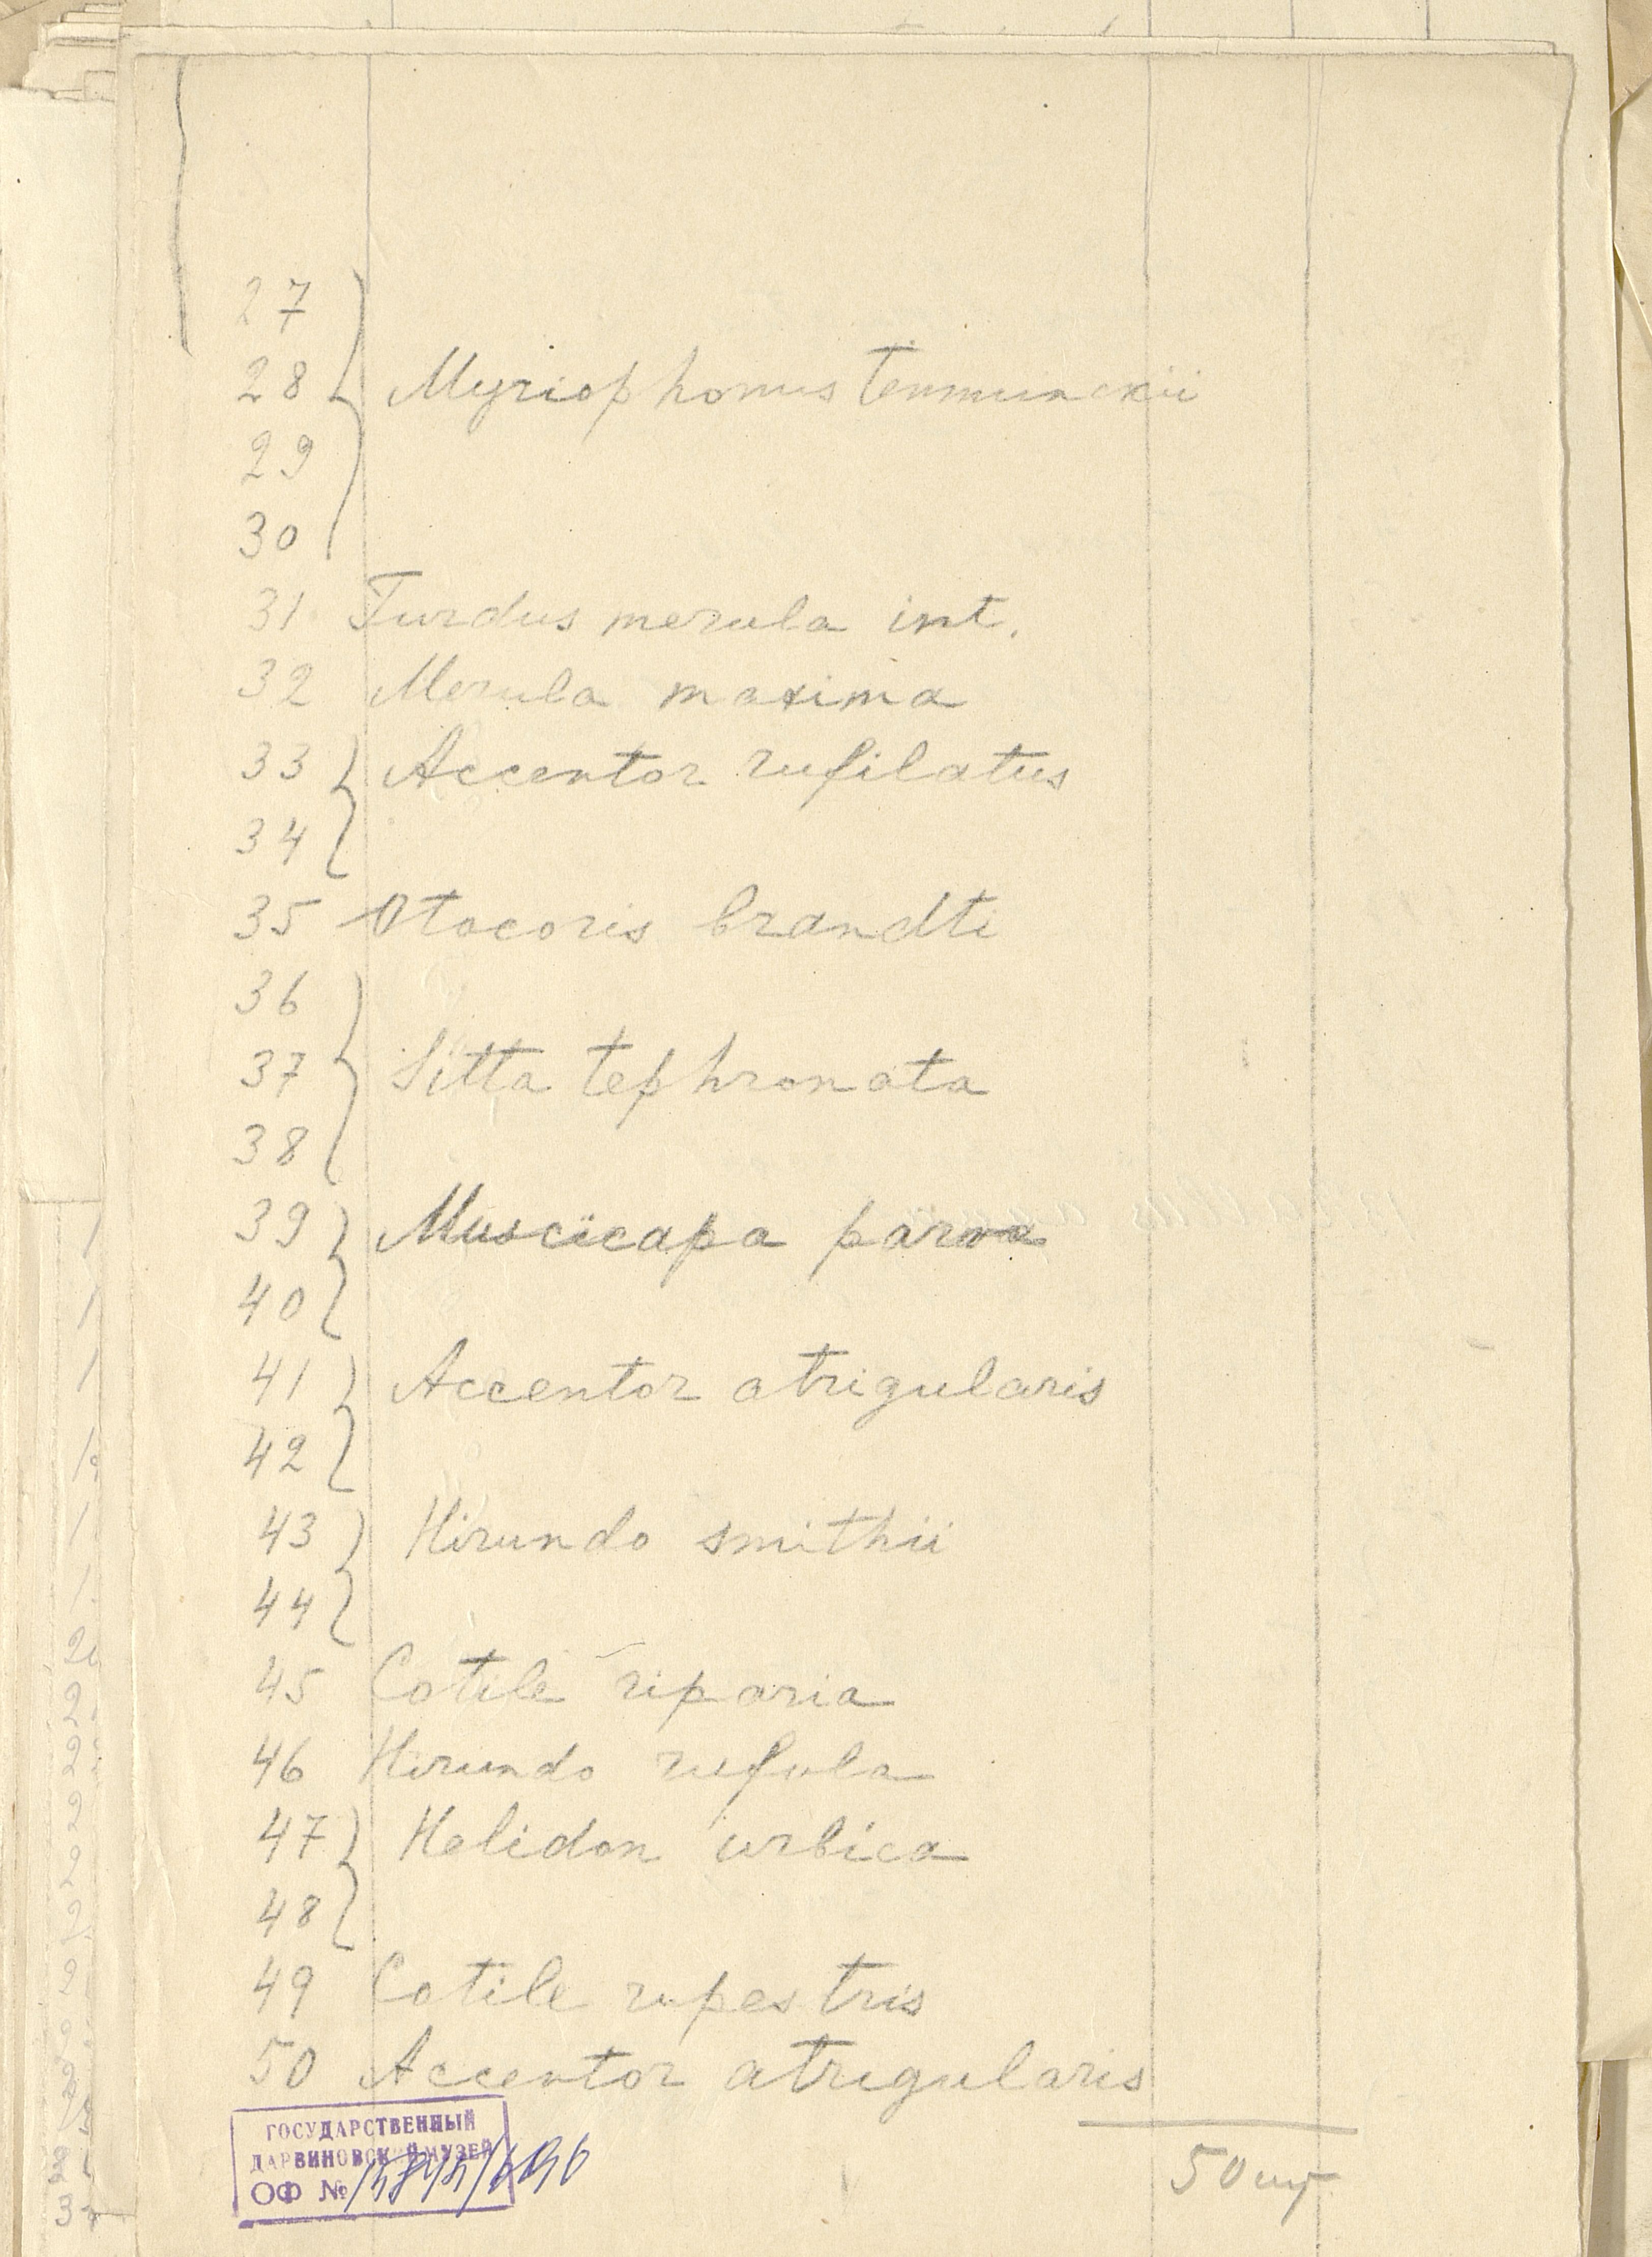 27
28 Myriophonus temminckii
29
30
31 Turdus merula int.
32 Merula maxima
33 Accentor rufilatus
34
35 Otocoris brandti
36
37 Sitta tephronata
38
39 Muscicapa parva
40
41 Accentor atrigularis
42
43 Hirundo smithii
44
45 Cotile riparia
46 Hirundo rufula
47 Helidon urbica
48
49 Cotile rupestris
50 Accentor atrigularis
50 шт
ГОСУДАРСТВЕННЫЙ
ДАРВИНОВСКИЙ МУЗЕЙ
ОФ №